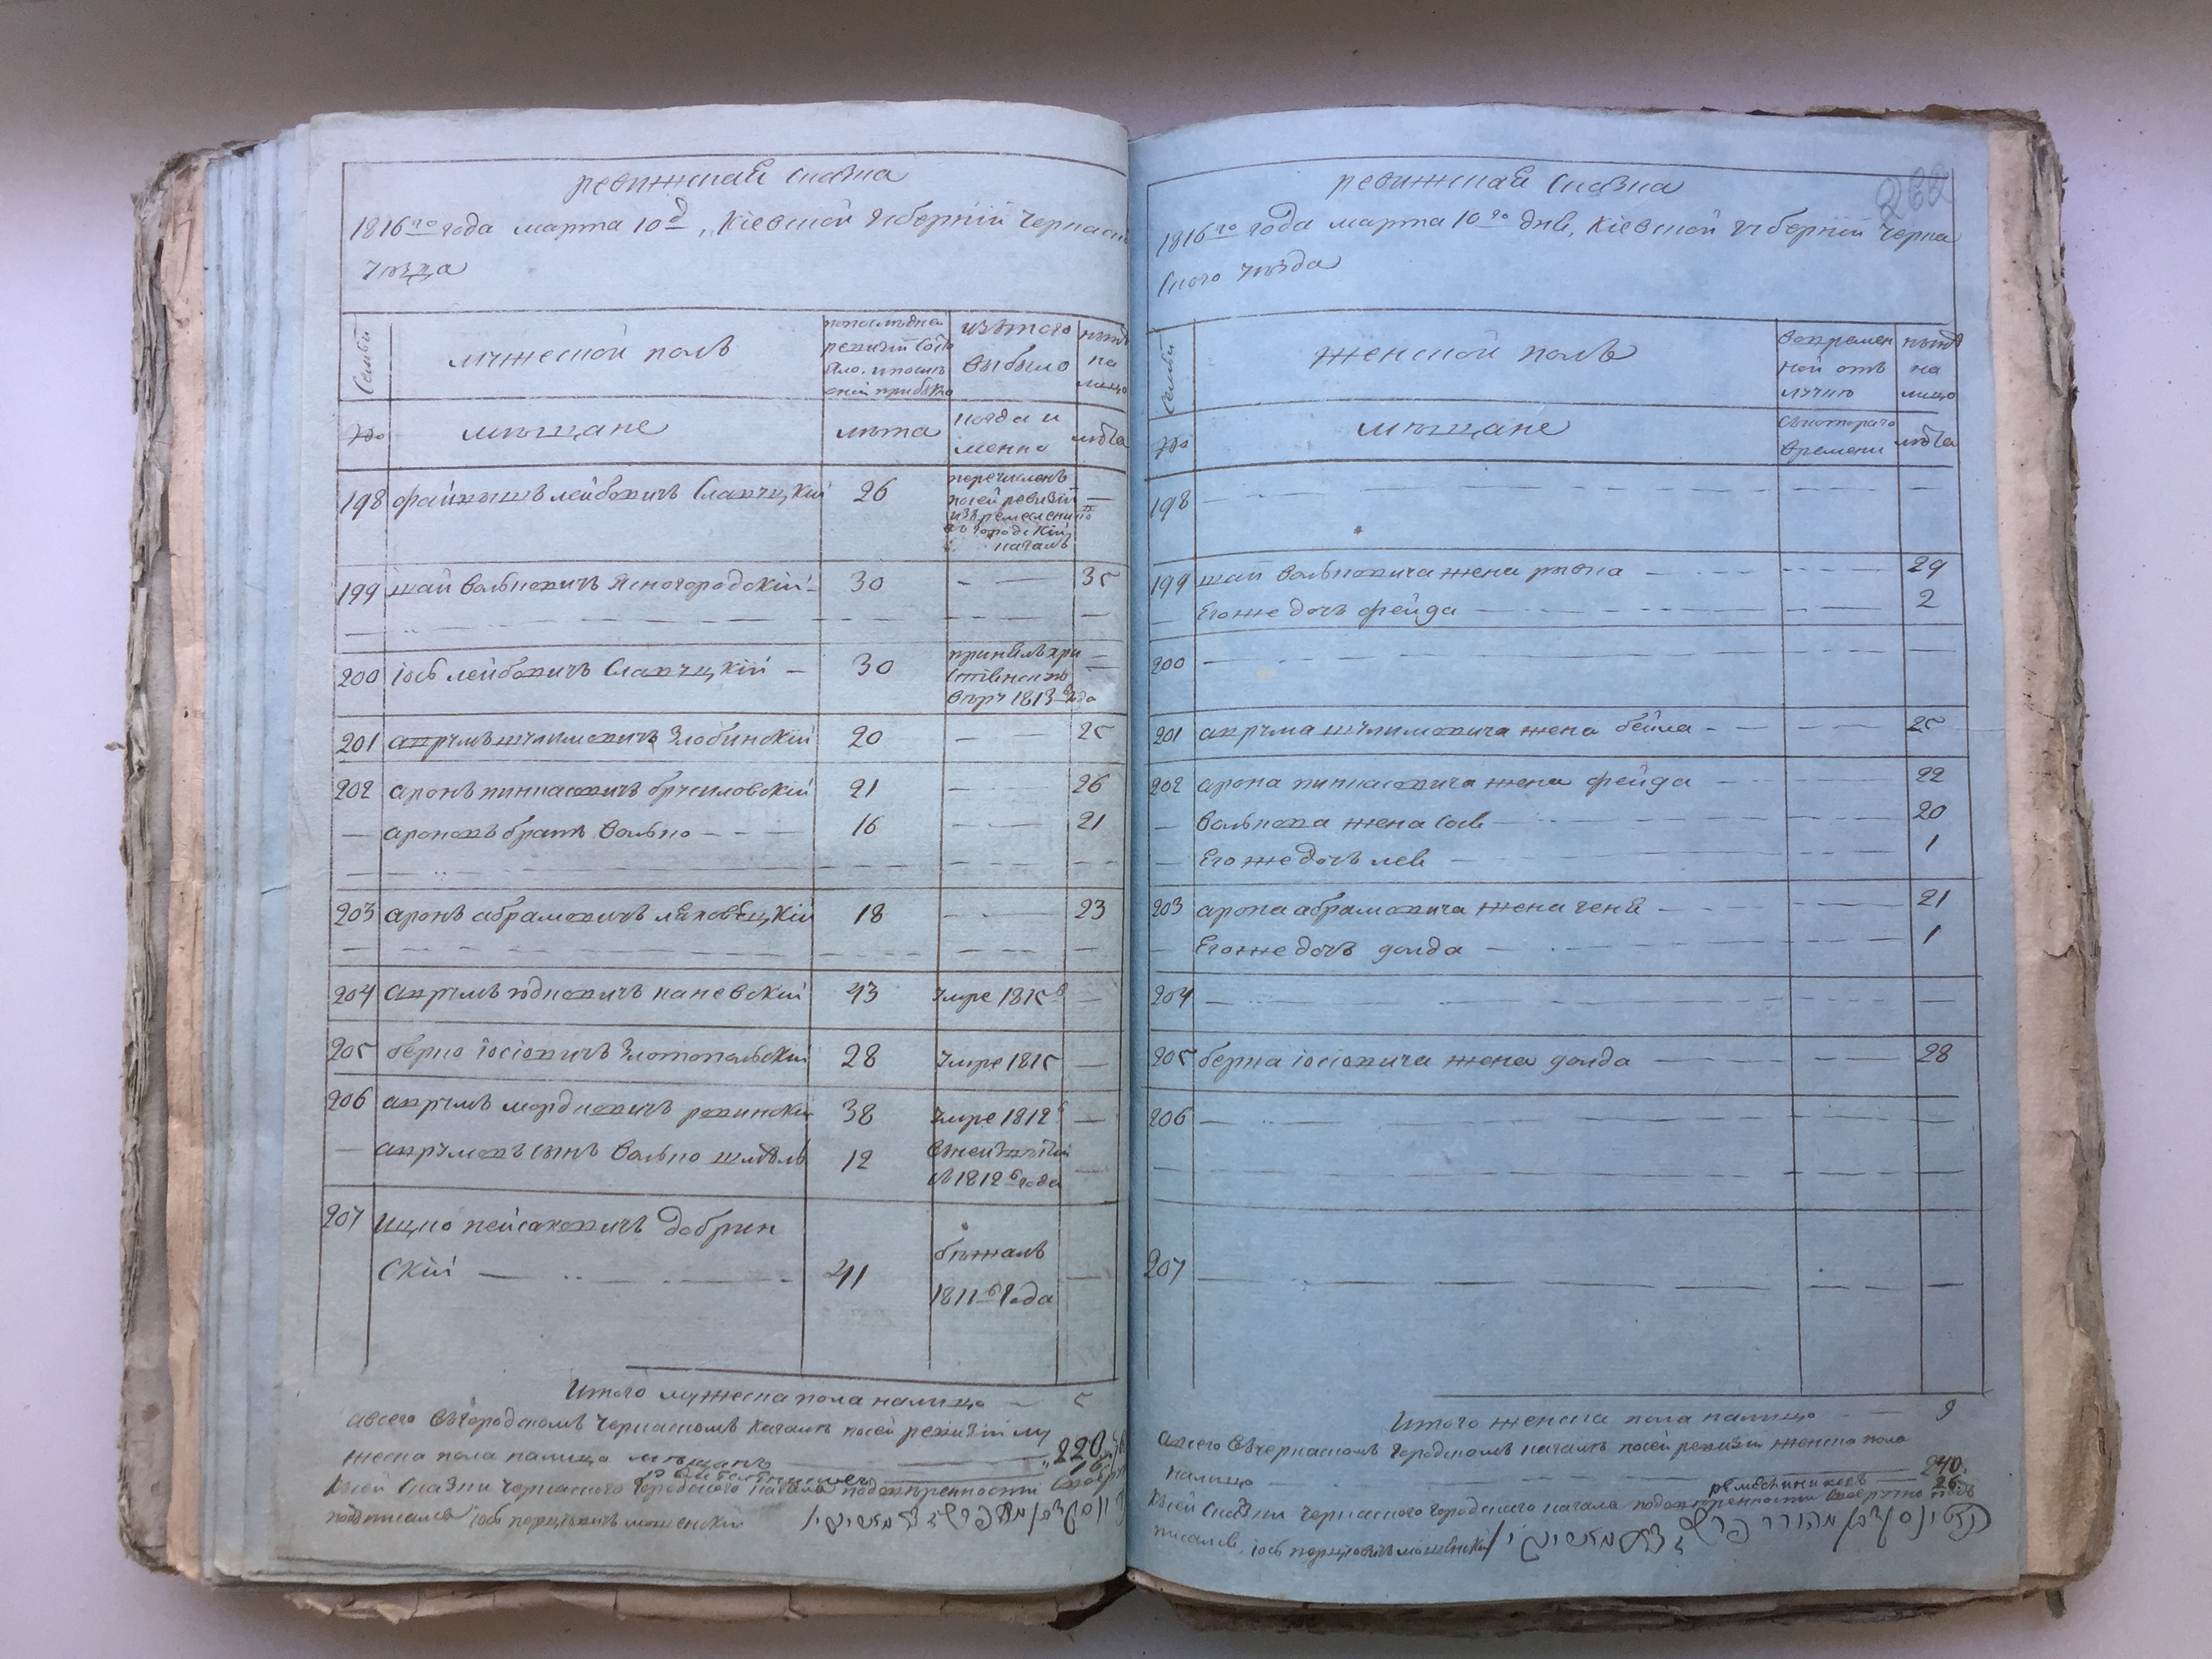 ревижская сказка
1816го года марта 10д, Кіевской губерніи Черкаск
уѣзда
Семьи
мужеской полъ
по последней
ревизіи состо
яло, и после
оной прибыло
изъ того
выбыло
нынѣ
на
лицо
№
мѣщане
лѣта
когда и
менно
лѣта
198 Файвышъ лейбовичъ Славуцкій 26
перечисленъ
по сей ревизіи
въ городскій
кагалъ
—
199 шай волковичъ Ясногородскій - 30 - — 35
200 іось лейбовичъ Славуцкій — 30
принялъ хри
стіянскую
веру 1813го года
—
201 аврумъ шулимовичъ Злобинскій 20 — 25
202 аронъ пинкасовичъ брусиловскій 21 — 26
— ароновъ братъ волько - - — 16 — 21
203 аронъ абрамовичъ ляховецкій 18 — 23
204 аврумъ юдковичъ каневскій 43 умре 1815 —
205 берко іосіовичъ Злотопольскій 28 умре 1815 —
206 аврумъ мордковичъ ровинскій 38 умре 1812 —
— аврумовъ сынъ волько шмуль 12
въ 1812 года
—
207 ицко пейсаховичъ добрин
скій — 41
бѣжалъ
1811 года
—
Итого мужеска пола налицо — 5
а всего въ городскомъ черкаскомъ кагалѣ по сей ревизіи му
жеска пола налицо мѣщанъ — 220
къ сей сказки черкаского городского кагала по доверенности
подписался іось перцовичъ мошенскій
262
ревижская сказка
1816го года марта 10го дня, Кіевской губерніи черка
ского уѣзда
Семьи
женской полъ
во времен
ной отъ
лучки
нынѣ
на
лицо
№
мѣщане
съ котораго
времени
лѣта
198 —
199 шай волковича жена рывка — 29
Его же дочь фейга — 2
200 —
201 аврума шулимовича жена бейла - 25
202 арона пинкасовича жена фейга — 22
— волькова жена сося — 20
— Его же дочь лея — 1
203 арона абрамовича жена геня — 21
— Его же дочь голда — 1
204 —
205 берка іосіовича жена голда — 28
206 —
207 —
Итого женска пола налицо — 9
а всего въ черкаскомъ городскомъ кагалѣ по сей ревизіи женска пола
налицо — 240
ремесниковъ — 26
къ сей сказки черкаского городского кагала по доверенности
писался іось перцовичъ мошенскій